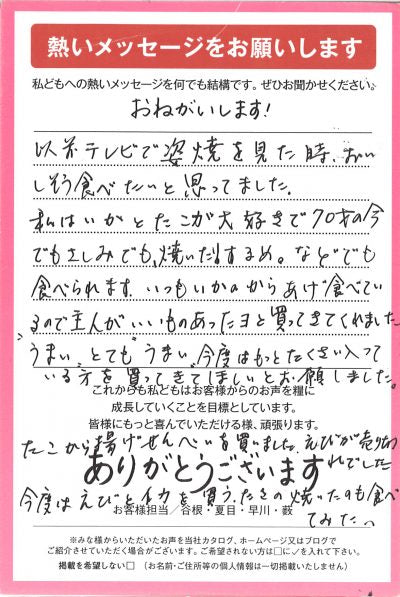 熱いメッセージをお願いします
私どもへの熱いメッセージを何でも結構です。ぜひお聞かせください。
おねがいします!
以前テレビで姿焼を見た時、おい
しそう食べたいと思ってました。
私はいかとたこが大好きで70才の今
でもさしみでも、焼いたするめ。などでも
食べられます。いつもいかのからあげ食べてい
るので主人がいいものあったヨと買ってきてくれました
"うまい"とても"うまい"今度はもっとたくさい入って
いる方を買ってきてほしいとお願しました。
これからも私どもはお客様からのお声を糧に
成長していくことを目標としています。
皆様にもっと喜んでいただける様、頑張ります。
たこから揚げせんべいを買いました。えびが売り切
れでした
ありがとうございます
今度はえびとイカを買う、たこの焼いたのも食べ
お客様担当／谷根・夏目・早川・薮
てみたい
※みな様からいただいたお声を当社カタログ、ホームページ又はブログで
ご紹介させていただく場合がございます。ご希望されない方は□に✓を入れて下さい。
掲載を希望しない□ （お名前・ご住所等の個人情報は一切掲載いたしません）